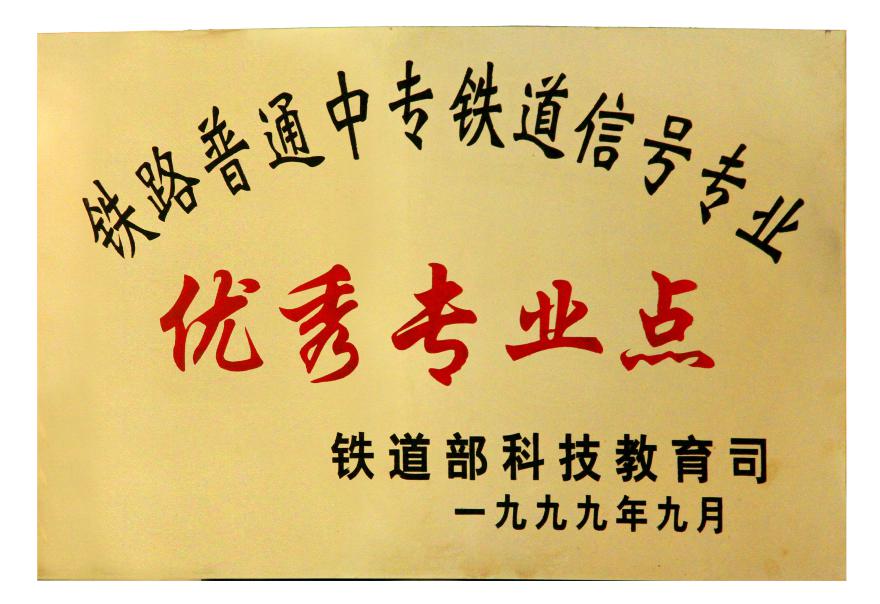 铁路普通中专铁道信号专业
优秀专业点
铁道部科技教育司
一九九九年九月